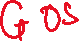 G os